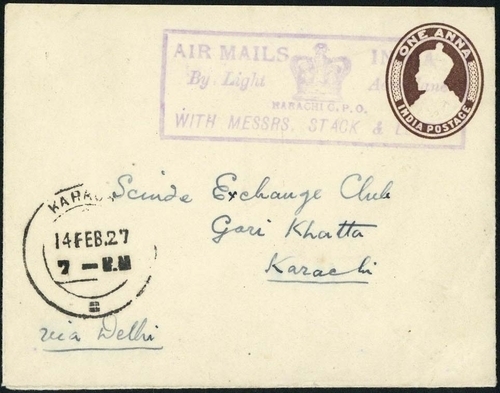 AIR MAILS IN
By Light
KARACHI G.P.O.
WITH MESSRS. STACK &
ONE ANNA
INDIA POSTAGE
Scinde Exchange Club
Gari Khatta
Karachi
KARACHI
14 FEB.27
7
via Delhi